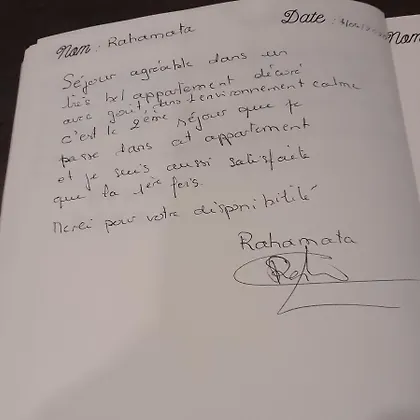 Nom : Rahamata
Date :
Séjour agréable dans un
très bel appartement décoré
avec goût, dans l'environnement calme
c'est le 2ème séjour que je
passe dans cet appartement
et je suis aussi satisfaite
que la 1ère fois.
Merci pour votre disponibilité
Rahamata
Nom